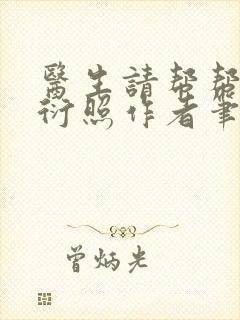 醫生請幫幫
衍照作者筆
曾炳光